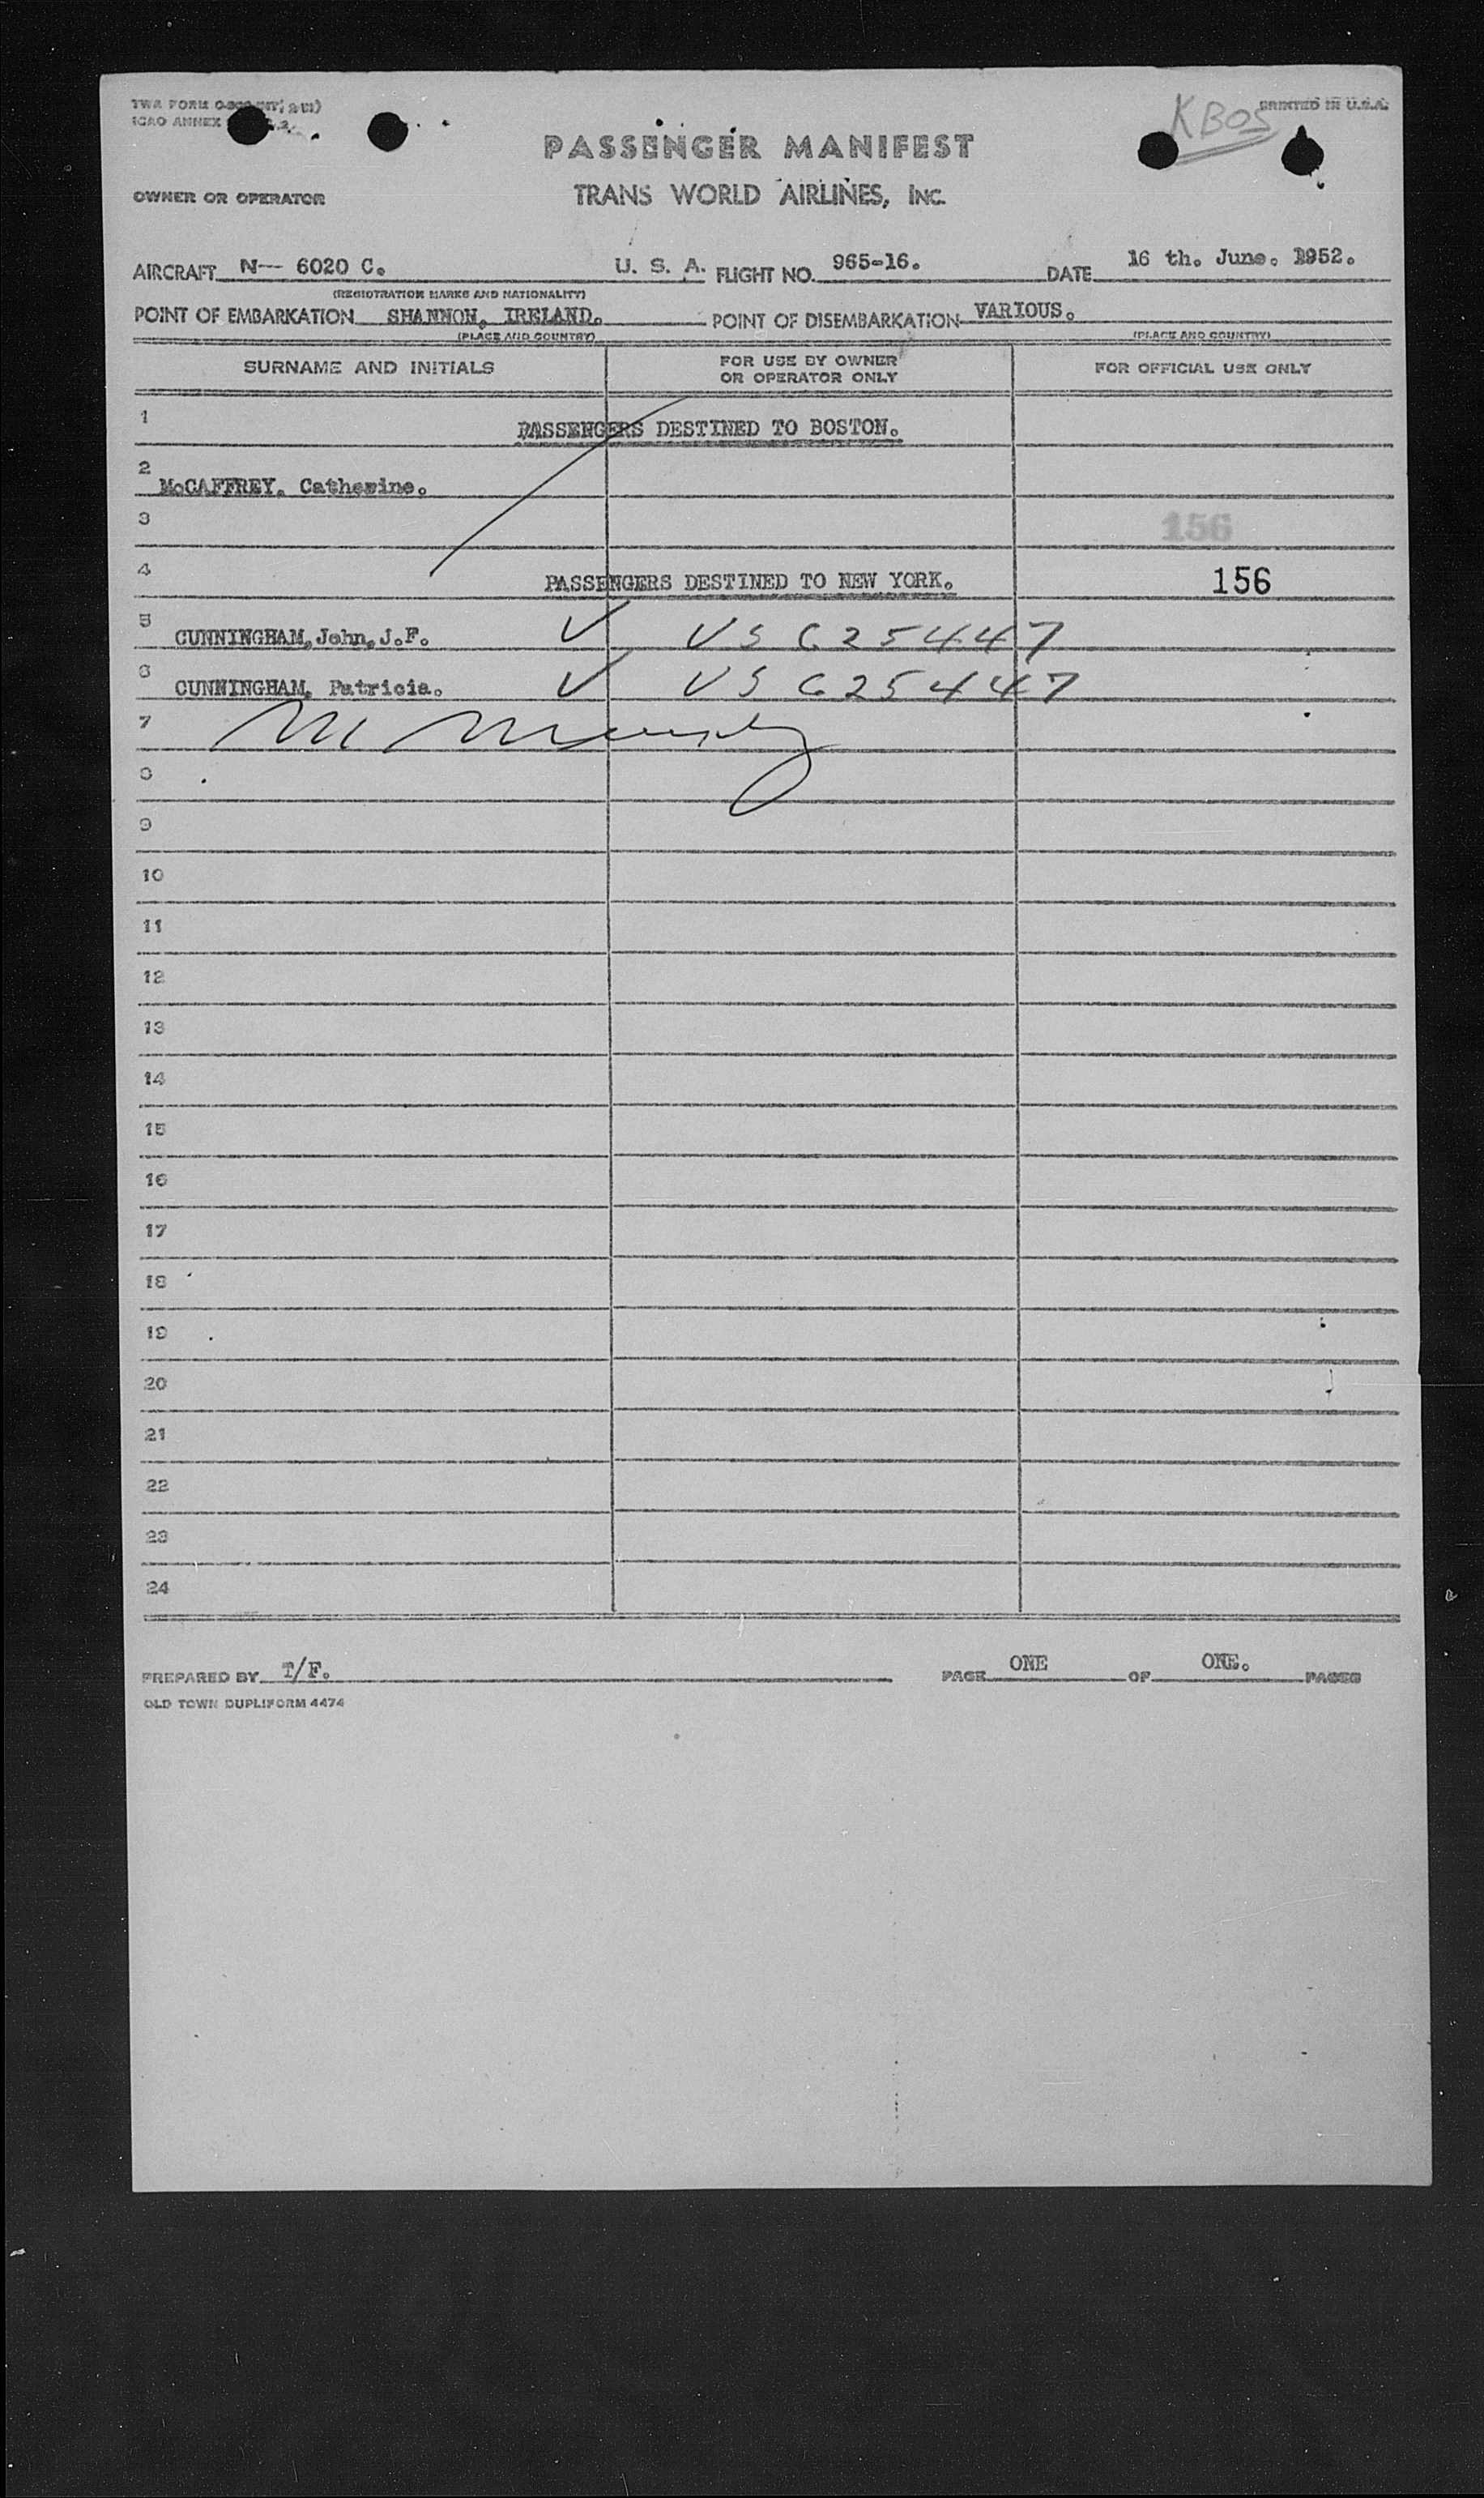 TWA FORM
ICAO ANNEX
KBOS
PRINTED IN U.S.A.
PASSENGER MANIFEST
OWNER OR OPERATOR TRANS WORLD AIRLINES, INC.
AIRCRAFT N-- 6020 C. U. S. A. FLIGHT NO. 965-16. DATE 16 th. June. 1952.
(REGISTRATION MARKS AND NATIONALITY)
POINT OF EMBARKATION SHANNON, IRELAND. POINT OF DISEMBARKATION VARIOUS.
(PLACE AND COUNTRY) (PLACE AND COUNTRY)
SURNAME AND INITIALS FOR USE BY OWNER OR OPERATOR ONLY FOR OFFICIAL USE ONLY
1 PASSENGERS DESTINED TO BOSTON.
2 McCAFFREY. Catherine.
3 156
4 PASSENGERS DESTINED TO NEW YORK. 156
5 CUNNINGHAM, John, J.F. V US 625447
6 CUNNINGHAM, Patricia. V US 625447
7
8
9
10
11
12
13
14
15
16
17
18
19
20
21
22
23
24
PREPARED BY T/F. PAGE ONE OF ONE. PAGES
OLD TOWN DUPLIFORM 4474